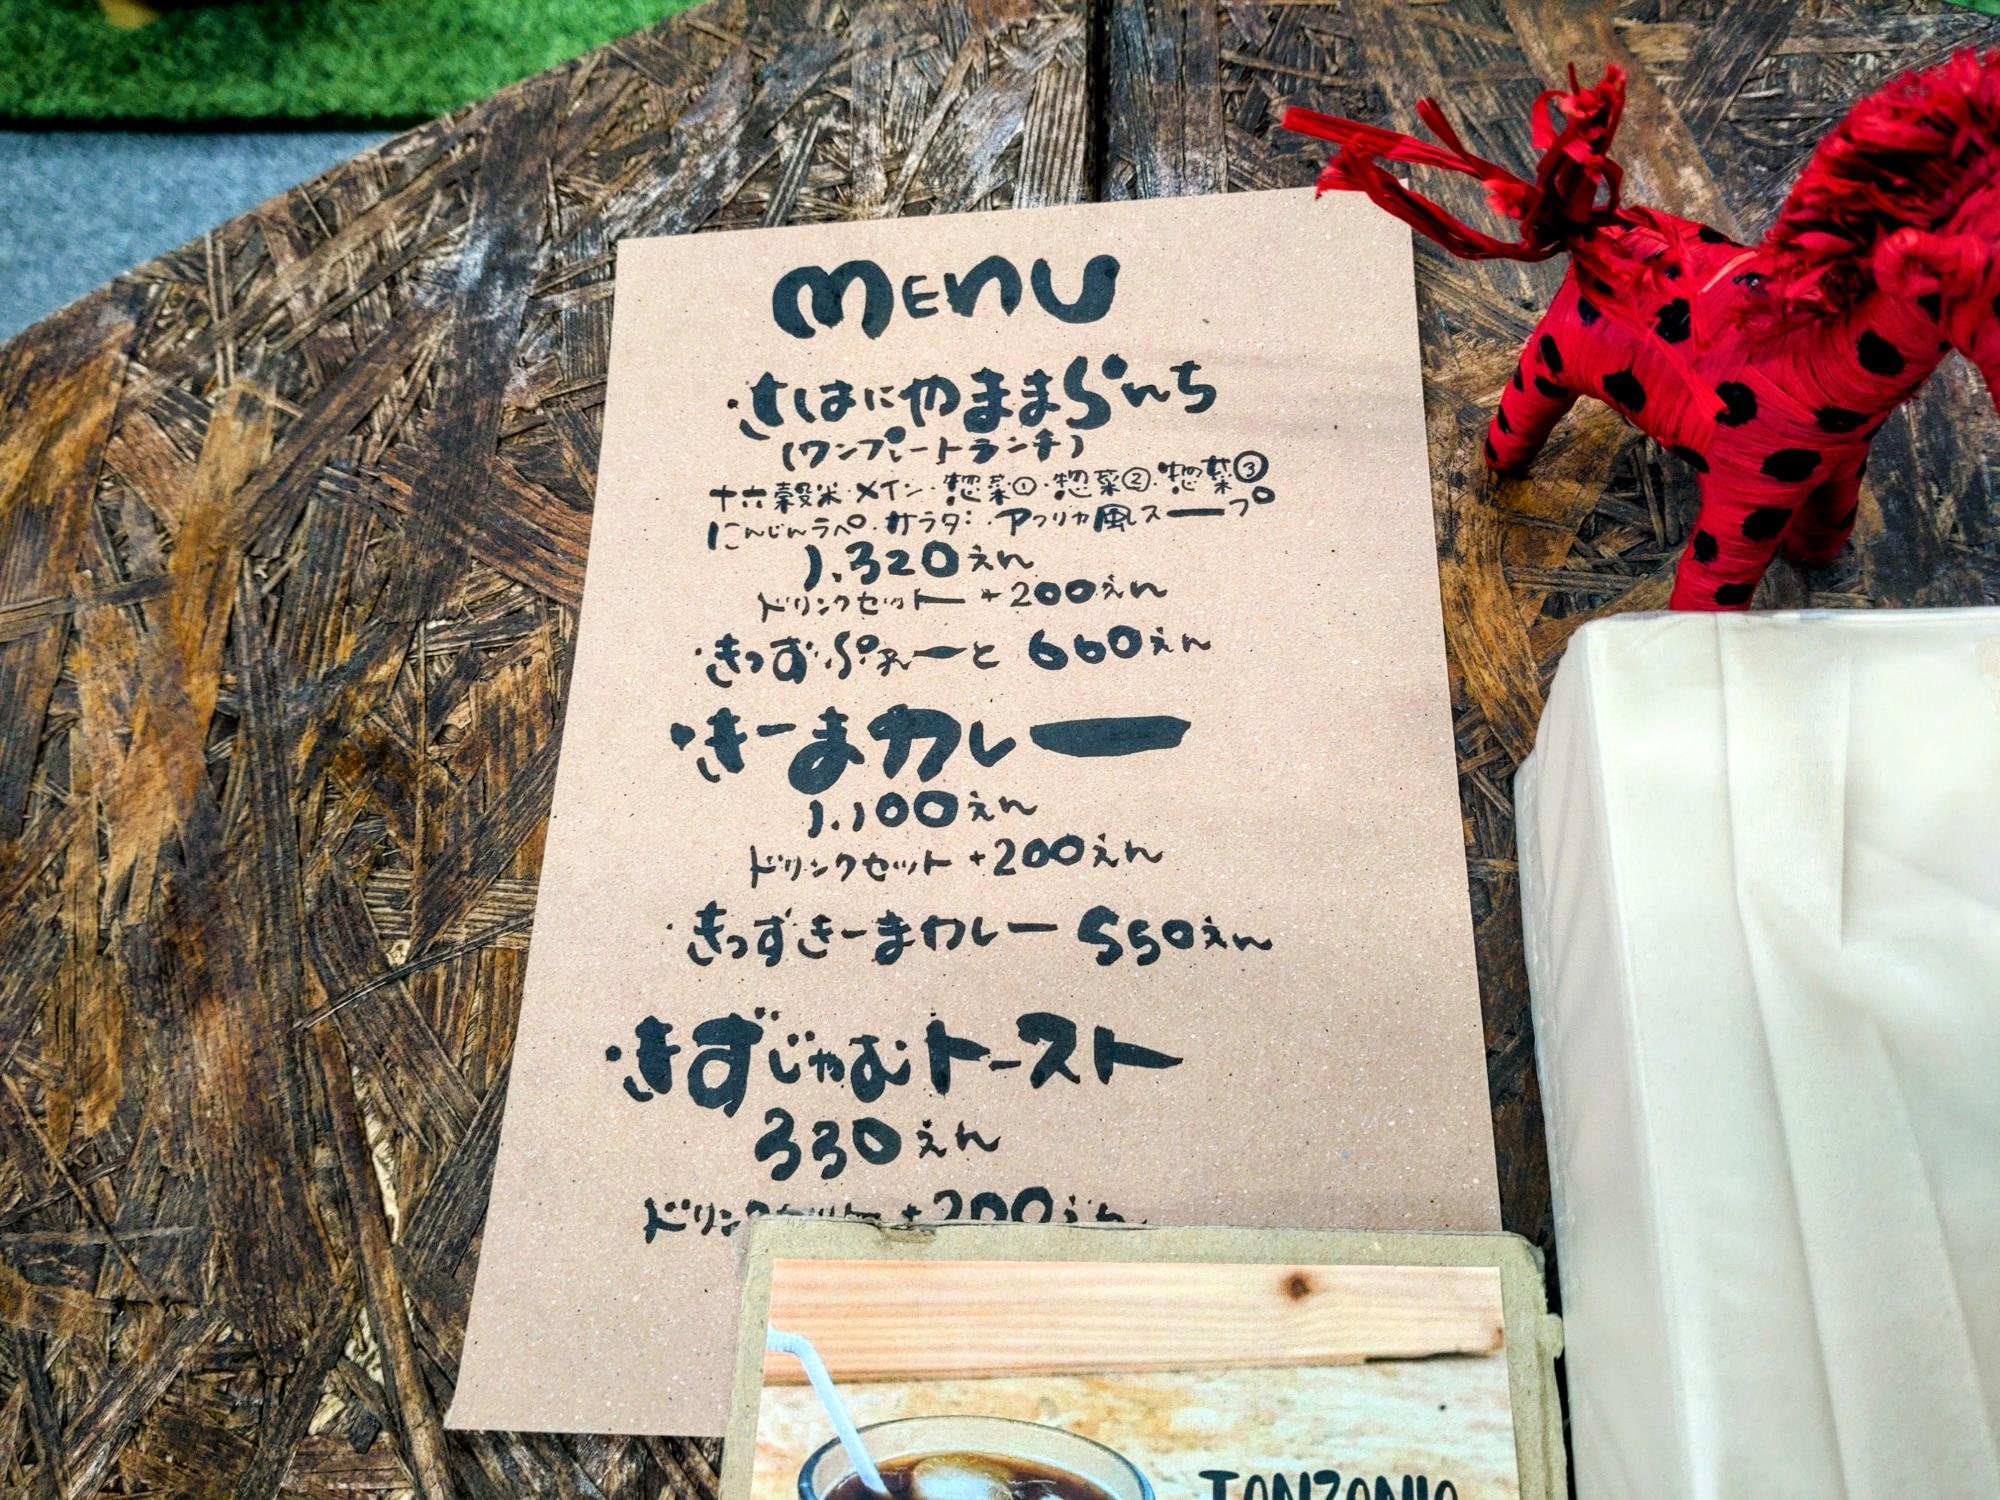 MENU
きはにやままらんち
(ワンプレートランチ)
十六穀米・メイン・惣菜①・惣菜②・惣菜③
にんじんラペ・サラダ・アフリカ風スープ
1,320えん
ドリンクセット +200えん
きっずぷれーと 660えん
きーまカレー
1,100えん
ドリンクセット +200えん
きっずきーまカレー 550えん
きずじゃむトースト
330えん
ドリンクセット +200えん
TANZANIA